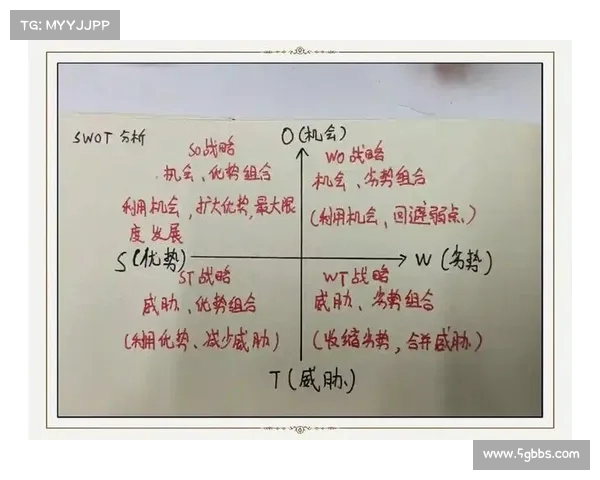 TG: MYYJJPP
SWOT 分析
O (机会)
SO战略
机会、优势组合
利用机会,扩大优势,最大限
度发展
WO 战略
机会、劣势组合
(利用机会、回避弱点)
S (优势)
W (劣势)
ST 战略
威胁、优势组合
(利用优势、减少威胁)
WT 战略
威胁、劣势组合
(收缩劣势,合并威胁)
T (威胁)
www.5gbbs.com